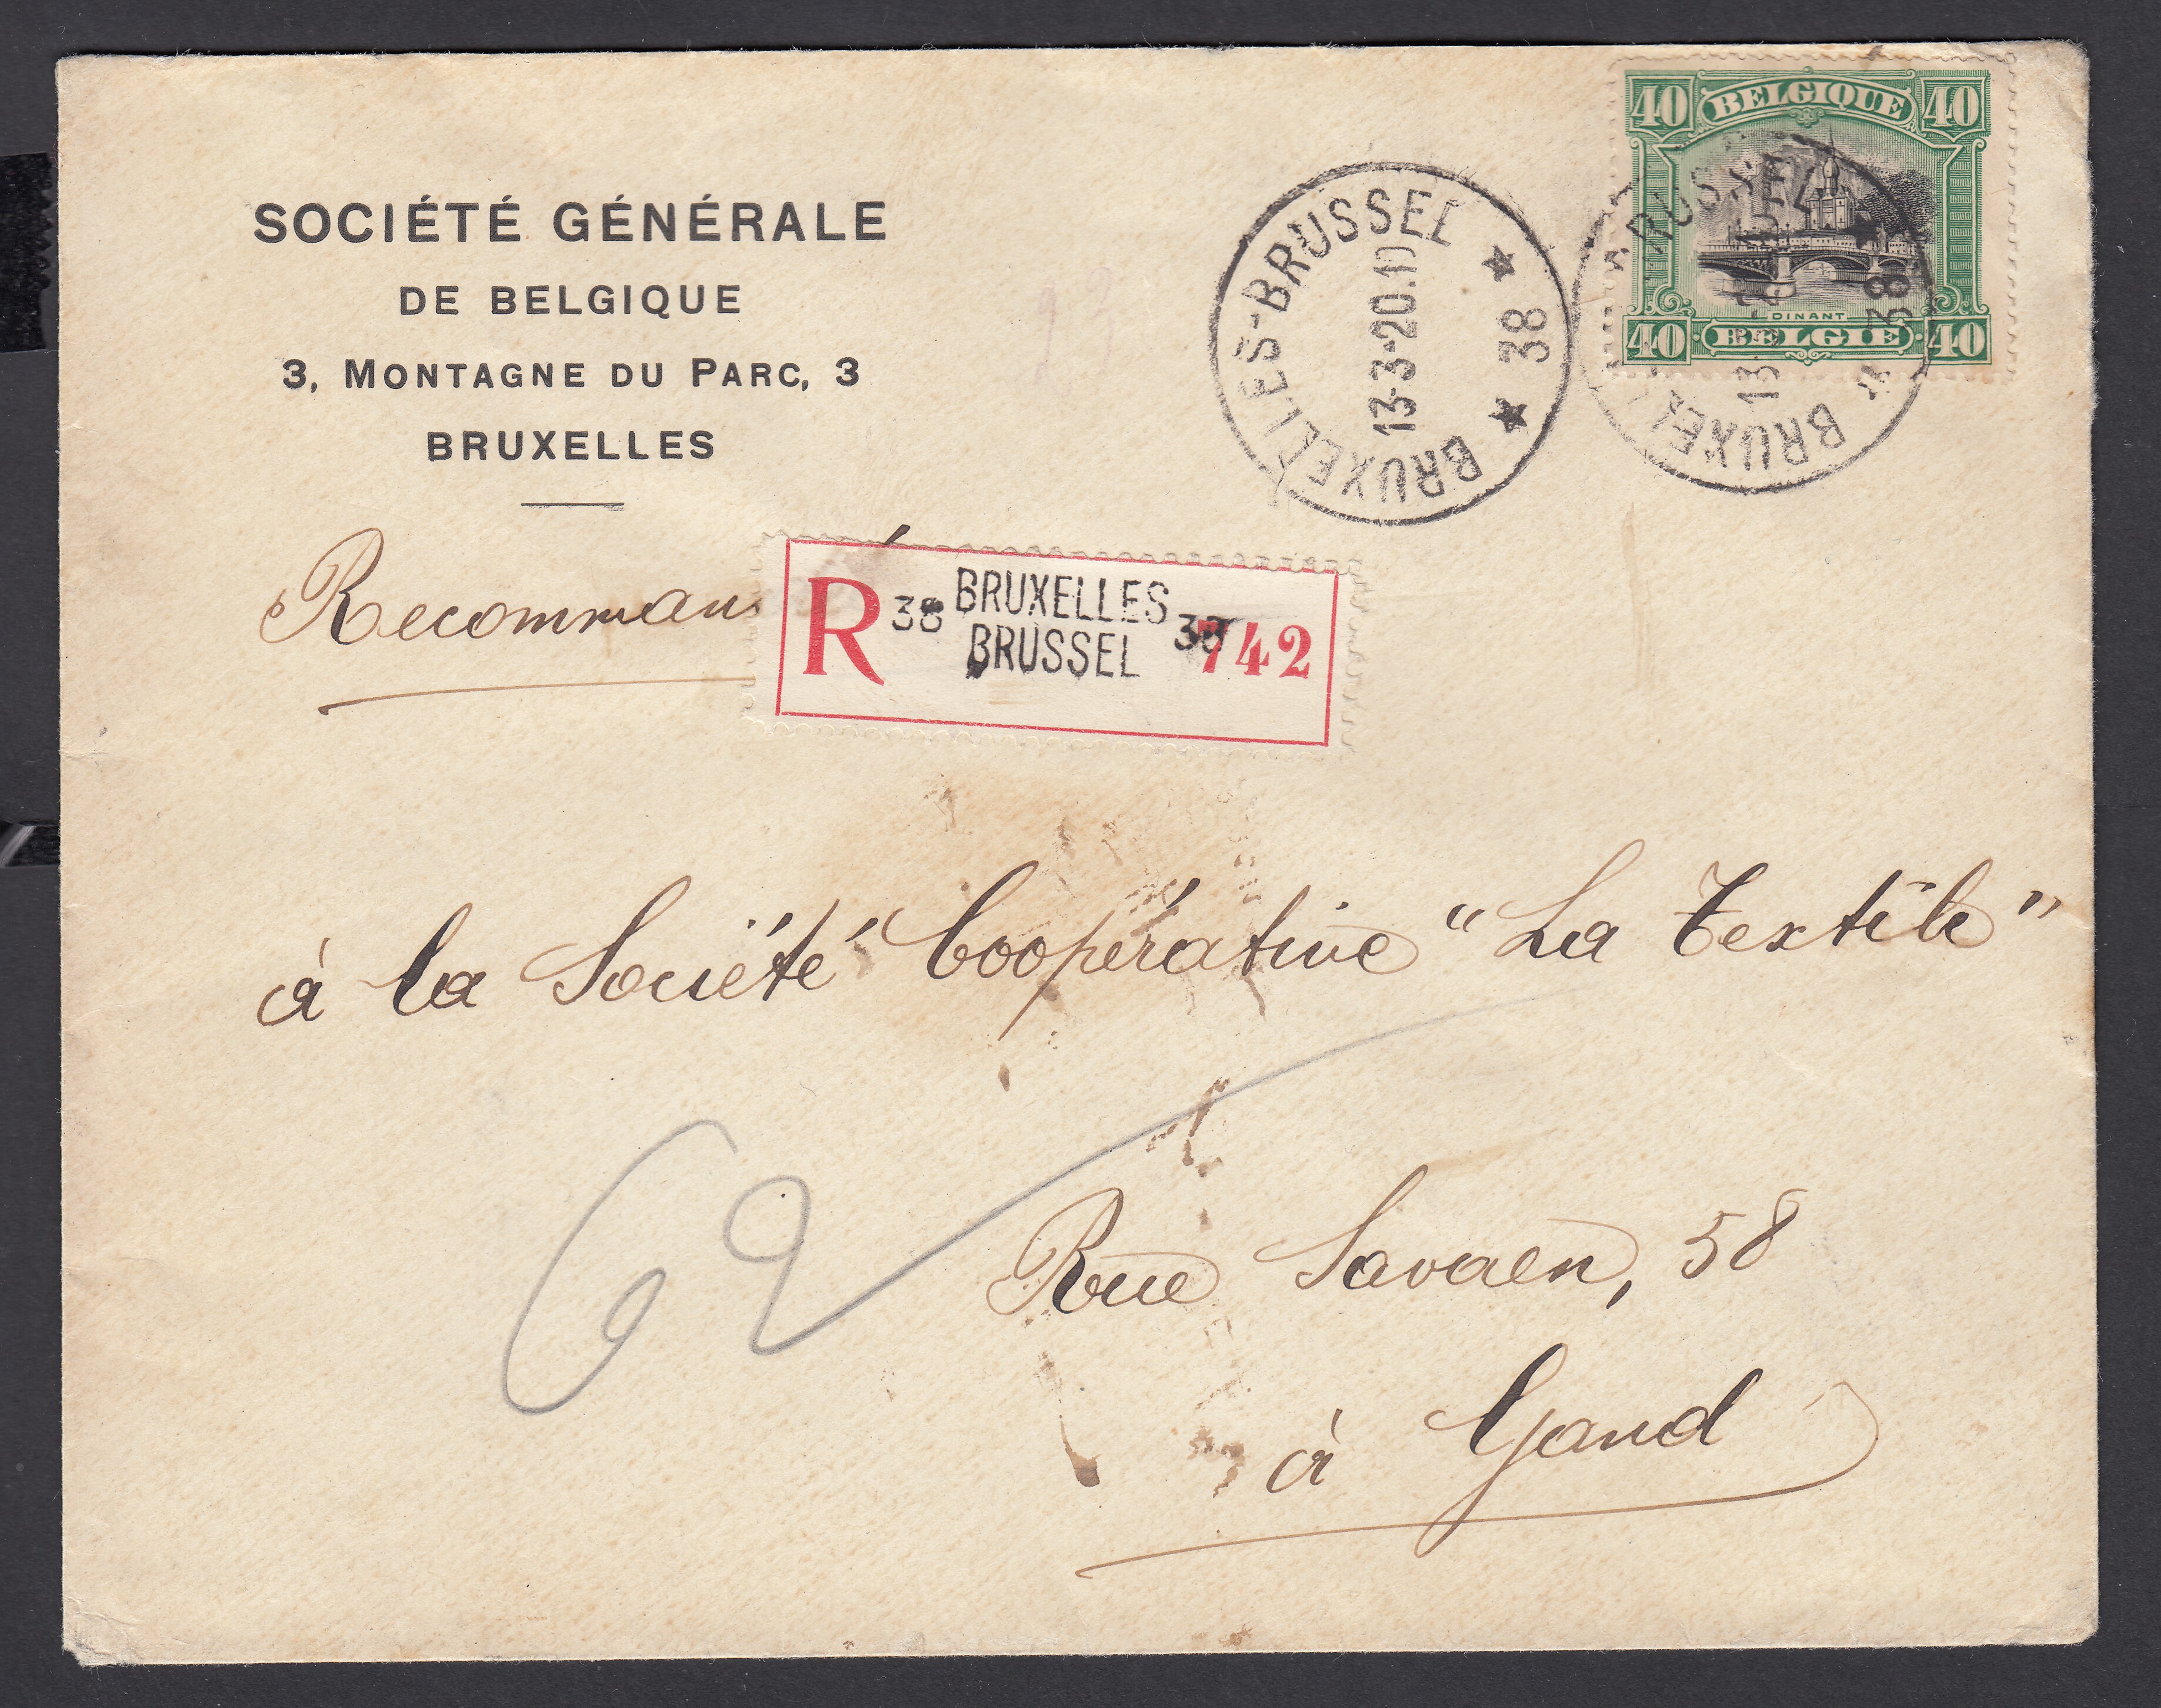 SOCIÉTÉ GÉNÉRALE
DE BELGIQUE
3, MONTAGNE DU PARC, 3
BRUXELLES
40 BELGIQUE 40
DINANT
40 BELGIE 40
BRUXELLES-BRUSSEL
13-3-20.
★ 38 ★
RUSSEL
38
13
BRUXEL
Recomman
R 38 BRUXELLES 38 742
BRUSSEL
à la Société Coopérative "La Textile"
62
Rue Savaen, 58
à Gand